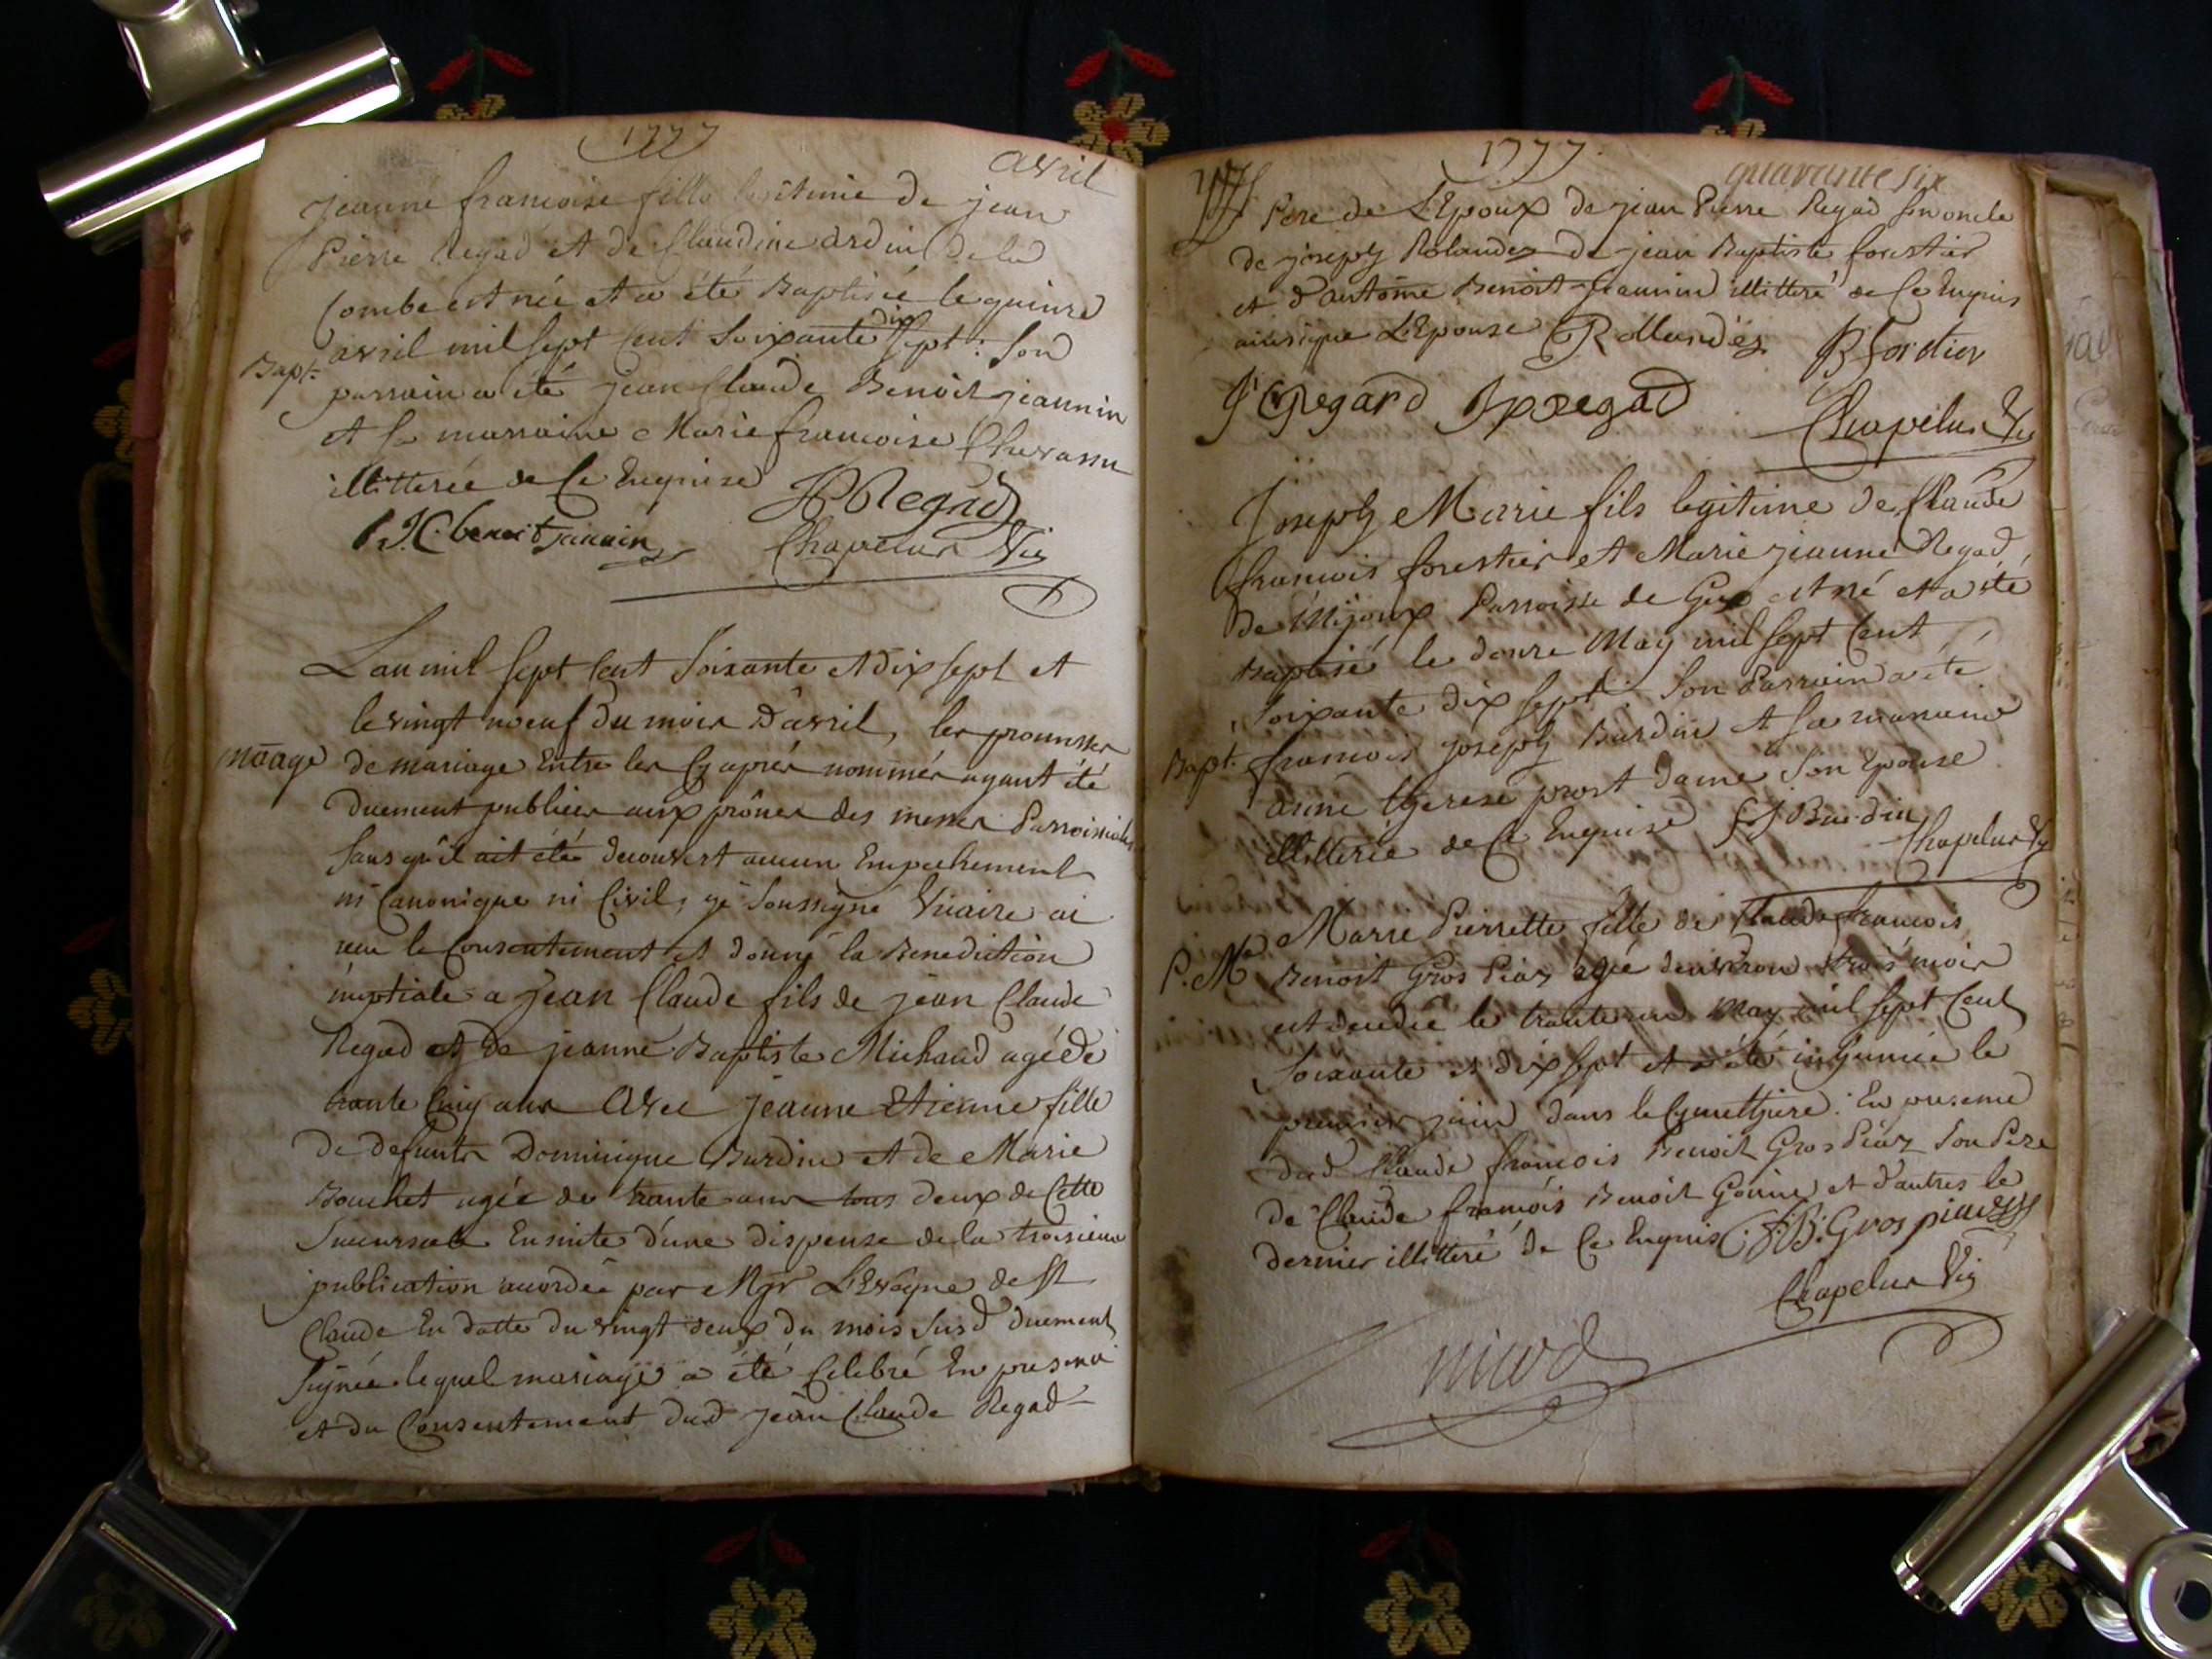 1777
avril
jeanne francoise fille legitime de jean
Pierre Regad et de Claudine ardin de la
Combe est née et a été Baptisée le quinze
avril mil sept cent soixante dix sept : son
Bapt.
parrain a été jean Claude Benoit jeannin
et sa marraine Marie francoise Chevassu
illitterée de Ce Enquise
JP Regad
J.C. benoit jannin
Chapelux Vic
L'an mil sept cent soixante et dix sept et
le vingt noeuf du mois d'avril, les promesses
maage
de mariage Entre les Cy aprés nommés ayant été
duement publiées aux prônes des messes Parroissiales
sans qu'il ait été decouvert aucun Empechement
ni Canonique ni Civil, je soussigné Vicaire ai
recu le Consentement et donné la Benediction
nuptiale a jean Claude fils de jean Claude
Regad et de jeanne Baptiste Michaud agé de
trante Cinq ans avec jeanne Etienne fille
de defunts Dominique Burdin et de Marie
Bouchet agée de trante ans tous deux de Cette
Succursale Ensuite d'une dispense de la troisieme
publication accordée par Mgr L'Evêque de St
Claude En datte du vingt deux du mois susd duement
signée lequel mariage a été Celebré En presence
et du Consentement dud jean Claude Regad
1777
quarante six
Pere de L'Epoux de jean Pierre Regad son oncle
de joseph Rolandez de jean Baptiste forestier
et d'antoine Benoit jeannin illitteré de Ce Enquis
ainsique L'Epouse
Rollandéz
JB forestier
J C Regard
J p regad
Chapelux Vic
Joseph Marie fils legitime de Claude
francois forestier et Marie jeanne Regad
de Mijoux Parroisse de Gex est né et a été
Baptisé le douze May mil sept Cent
soixante dix sept : son Parrain a été
Bapt.
francois joseph Burdin et sa marraine
anne therese prost dame son Epouse
illitterée de Ce Enquise
f J Burdin
Chapelux Vic
Marie Pierrette fille de Claude francois
P. Me
Benoit Gros Piaz agée d'environ trois mois
est decedée le trante un May mil sept Cent
soixante et dix sept et a été inhumée le
premier juin dans le Cymettiere. En presence
dud Claude francois Benoit Gros Piaz son Pere
de Claude francois Benoit Gonin et d'autres le
dernier illitteré de Ce Enquis
C f B. Gros piaz
Chapelux Vic